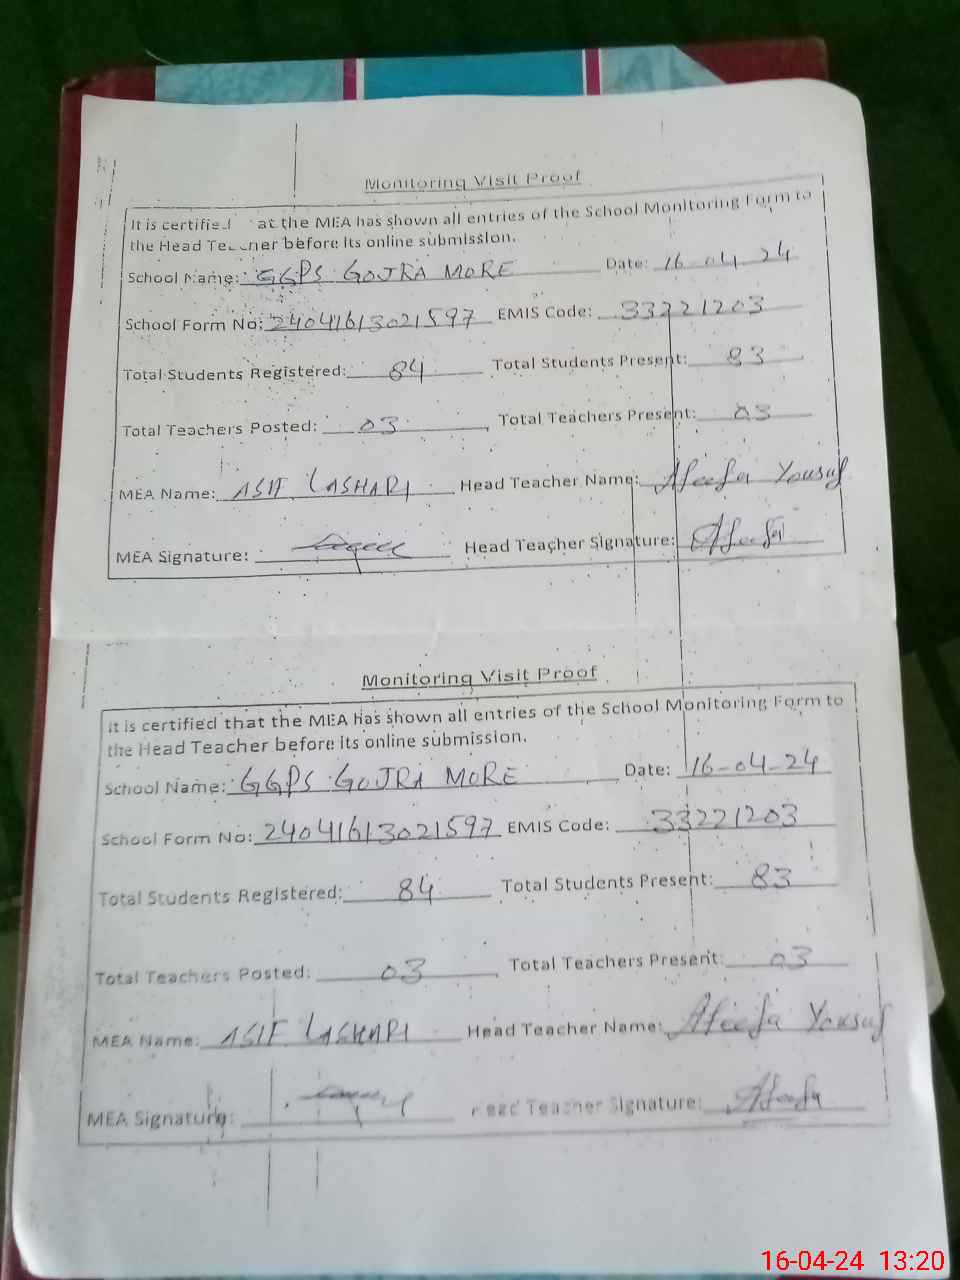 Monitoring Visit Proof
It is certified at the MEA has shown all entries of the School Monitoring Form to
the Head Teacher before its online submission.
School Name: GGPS GOJRA MORE Date: 16-04-24
School Form No: 24041613021597 EMIS Code: 33221203
Total Students Registered: 84 Total Students Present: 83
Total Teachers Posted: 03 Total Teachers Present: 03
MEA Name: ASIF LASHARI Head Teacher Name: Afeefa Yousuf
MEA Signature: Head Teacher Signature: Afeefa
Monitoring Visit Proof
It is certified that the MEA has shown all entries of the School Monitoring Form to
the Head Teacher before its online submission.
School Name: GGPS GOJRA MORE Date: 16-04-24
School Form No: 24041613021597 EMIS Code: 33221203
Total Students Registered: 84 Total Students Present: 83
Total Teachers Posted: 03 Total Teachers Present: 03
MEA Name: ASIF LASHARI Head Teacher Name: Afeefa Yousuf
MEA Signature: Head Teacher Signature: Afeefa
16-04-24 13:20